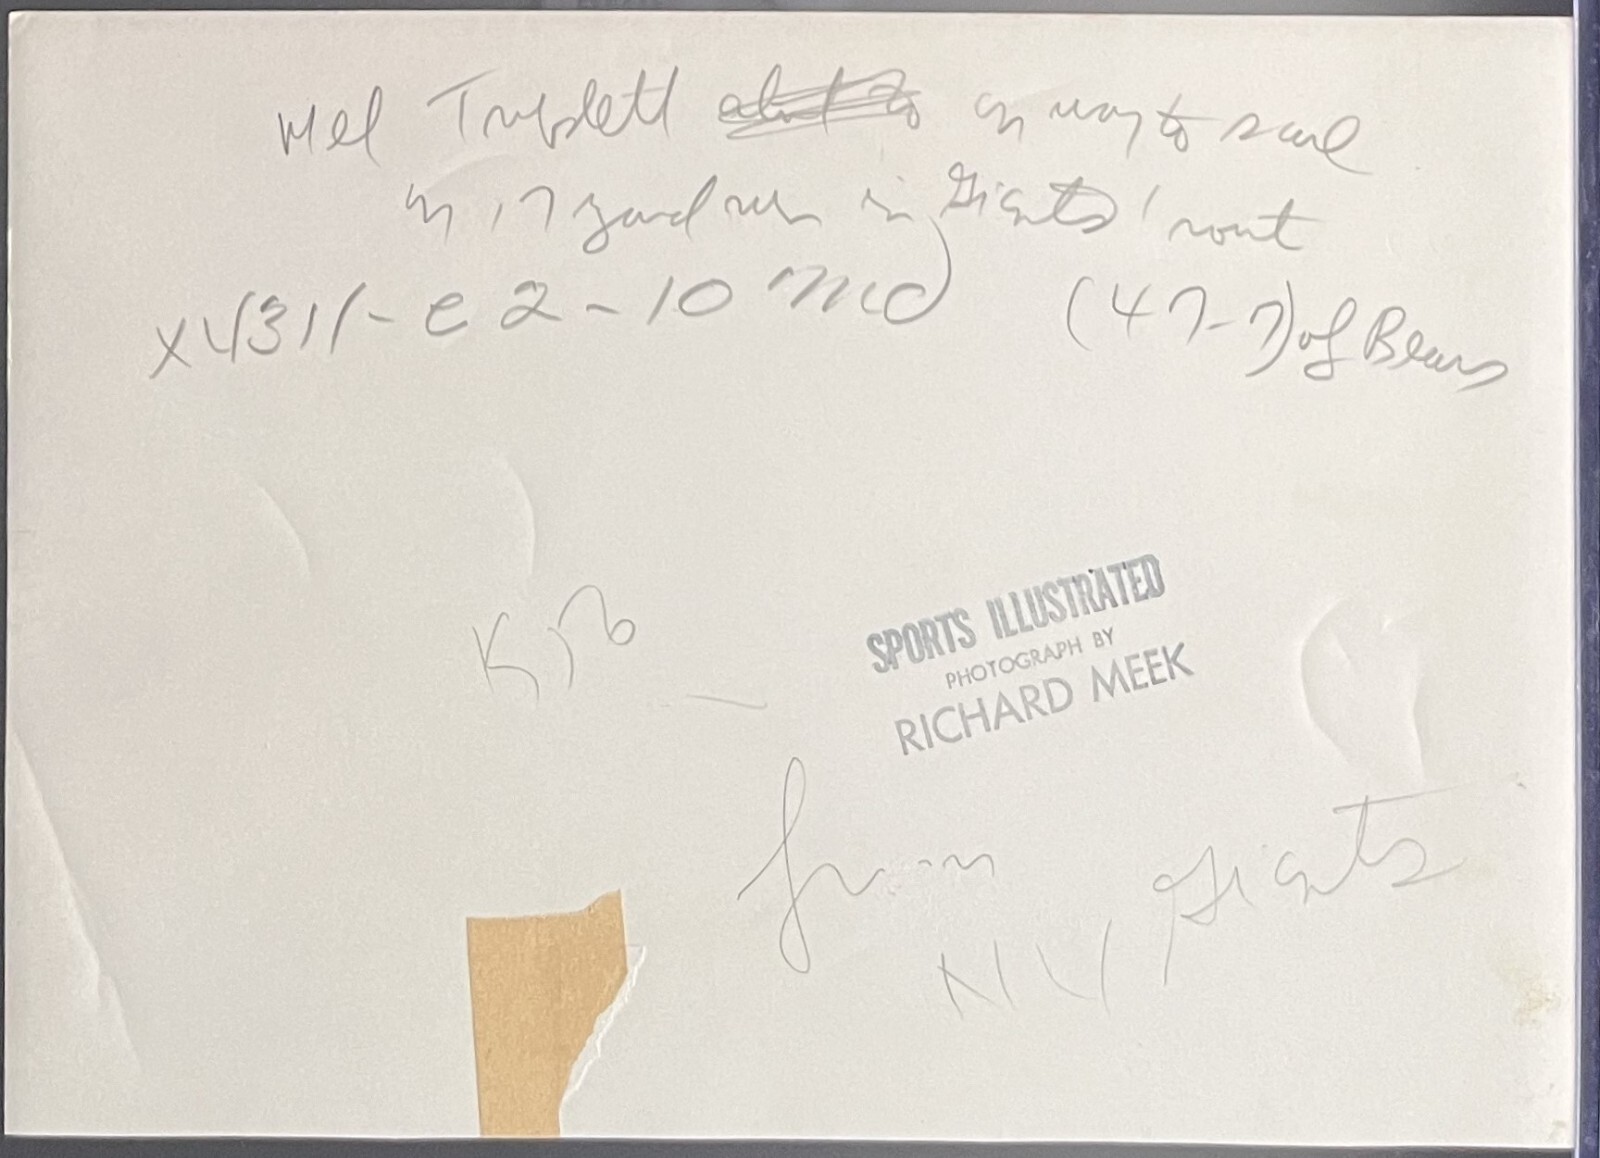 Mel Triplett on way to score
on 17 yard run in Giants' rout
(47-7) of Bears
X4311-e2-10 Md
SPORTS ILLUSTRATED
PHOTOGRAPH BY
RICHARD MEEK
from
NY Giants